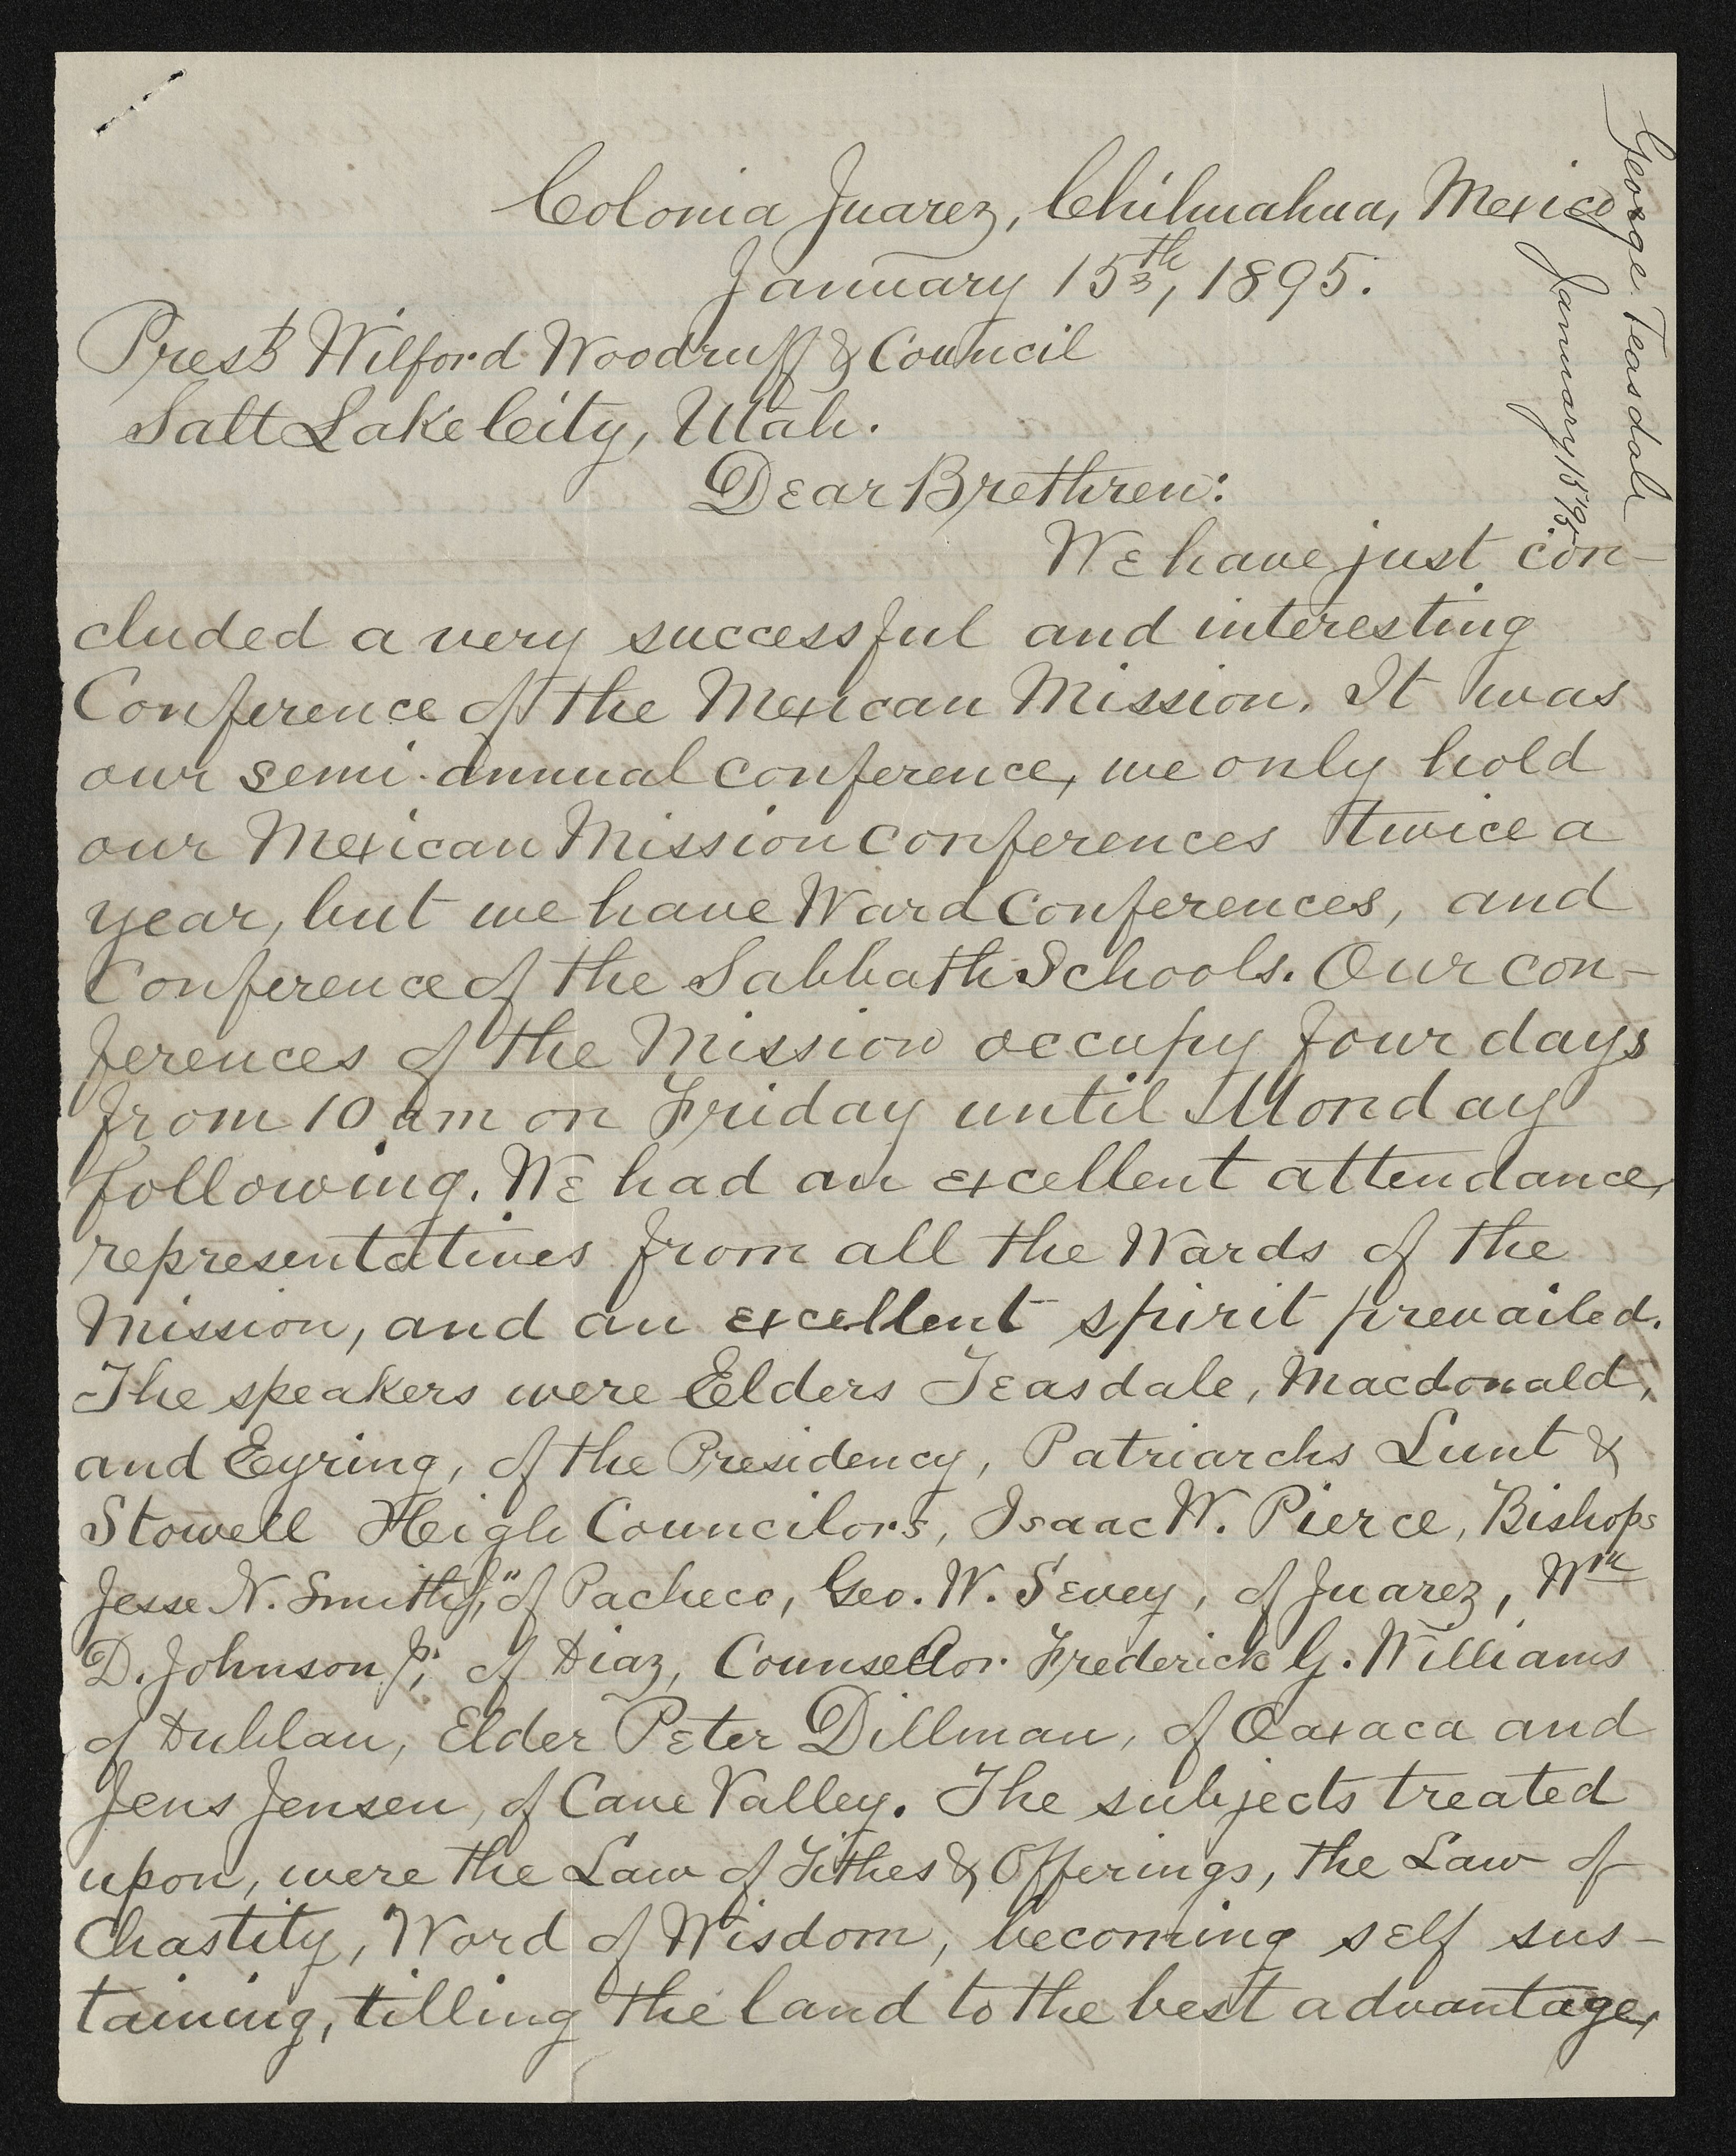 Colonia Juarez, Chihuahua, Mexico
January 15th, 1895.
George Teasdale
January 15 '95.
Prest Wilford Woodruff & Council
Salt Lake City, Utah.
Dear Brethren:
We have just con-
cluded a very successful and interesting
Conference of the Mexican Mission. It was
our semi-annual conference, we only hold
our Mexican Mission conferences twice a
year, but we have Ward conferences, and
Conference of the Sabbath Schools. Our con-
ferences of the Mission occupy four days
from 10 am on Friday until Monday
following. We had an excellent attendance,
representatives from all the Wards of the
Mission, and an excellent spirit prevailed.
The speakers were Elders Teasdale, Macdonald,
and Eyring, of the Presidency, Patriarchs Lunt &
Stowell High Councilors, Isaac W. Pierce, Bishops
Jesse N. Smith Jr, of Pacheco, Geo. W. Sevey, of Juarez, Wm
D. Johnson Jr, of Diaz, Counsellor Frederick G. Williams
of Dublan, Elder Peter Dillman, of Oaxaca and
Jens Jensen, of Cave Valley. The subjects treated
upon, were the Law of Tithes & Offerings, the Law of
Chastity, Word of Wisdom, becoming self sus-
taining, tilling the land to the best advantage,